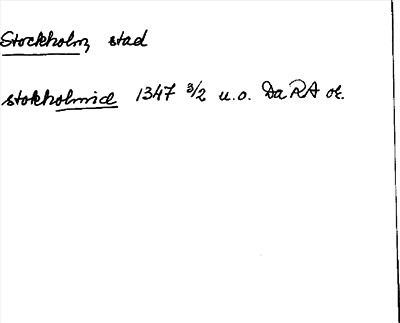 Stockholm, stad
stokholmid 1347 3/2 u.o. DaRA or.